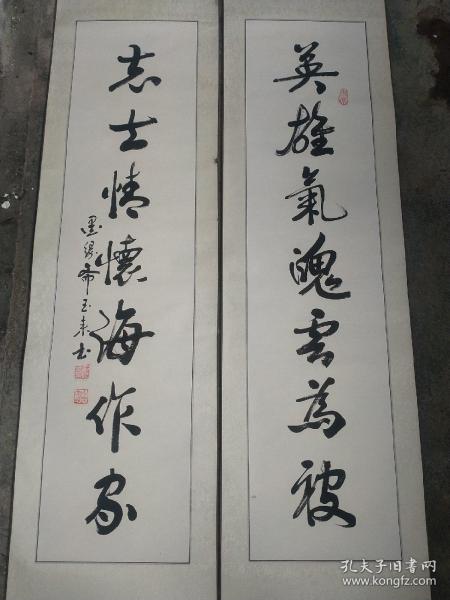 英雄氣魄雲為被
志士情懷海作家
墨緣齋玉來書
孔夫子旧书网
www.kongfz.com